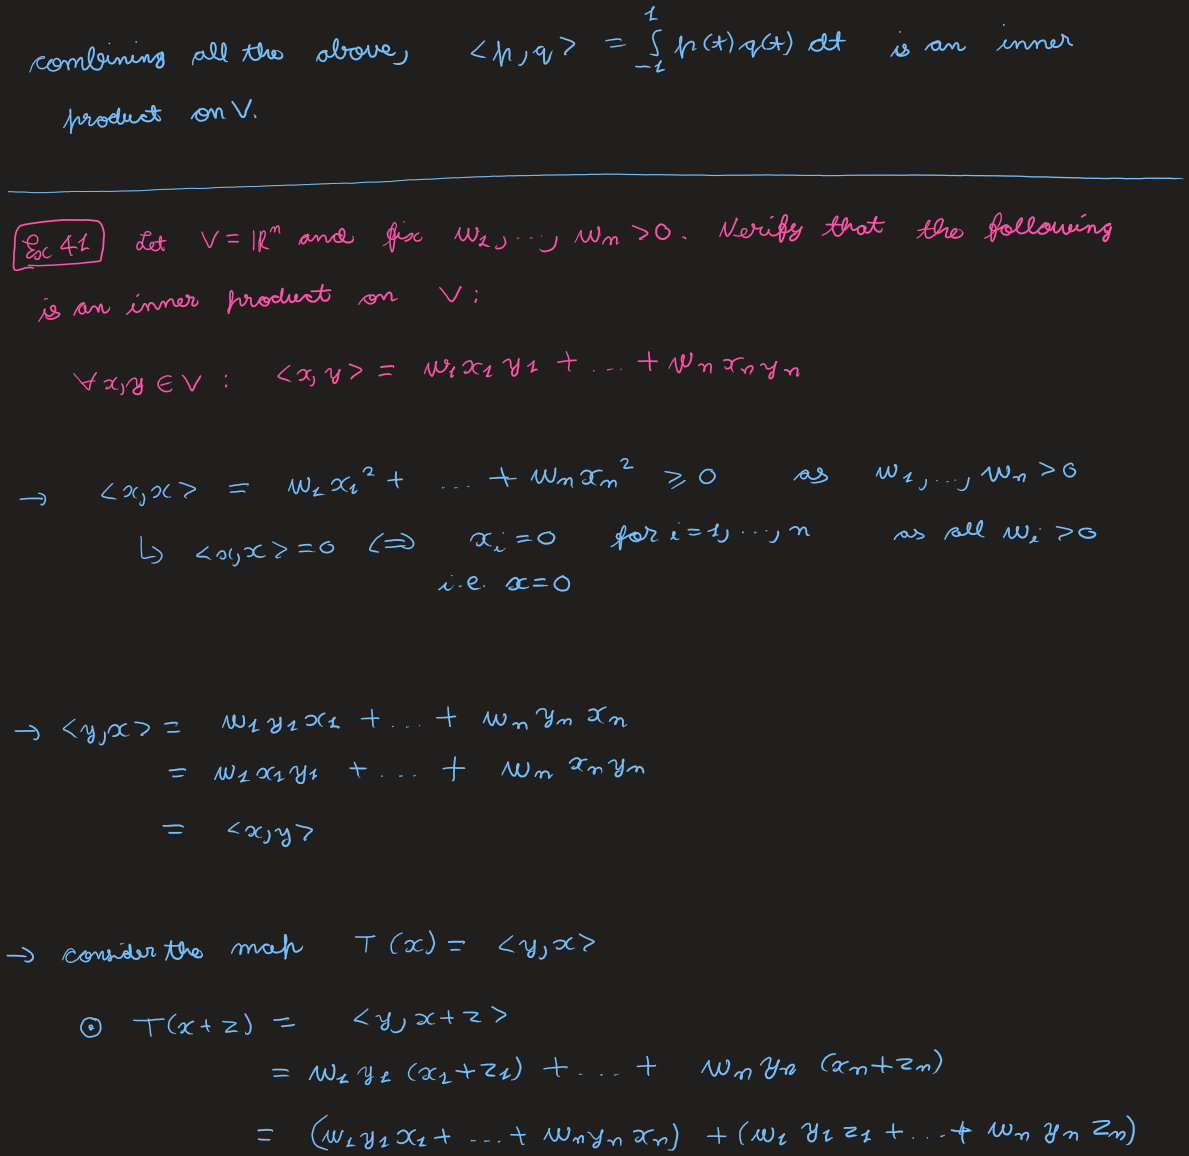 combining all the above, <p,q> = ∫₋₁¹ p(t) q(t) dt is an inner
product on V.
Ex 41 Let V = ℝⁿ and fix w₁, ..., wₙ > 0. Verify that the following
is an inner product on V:
∀x,y ∈ V : <x,y> = w₁x₁y₁ + ... + wₙxₙyₙ
→ <x,x> = w₁x₁² + ... + wₙxₙ² ⩾ 0 as w₁, ..., wₙ > 0
↳ <x,x> = 0 ⇔ xᵢ = 0 for i = 1, ..., n as all wᵢ > 0
i.e. x = 0
→ <y,x> = w₁y₁x₁ + ... + wₙyₙxₙ
= w₁x₁y₁ + ... + wₙxₙyₙ
= <x,y>
→ consider the map T(x) = <y,x>
⊙ T(x+z) = <y, x+z>
= w₁y₁(x₁+z₁) + ... + wₙyₙ(xₙ+zₙ)
= (w₁y₁x₁ + ... + wₙyₙxₙ) + (w₁y₁z₁ + ... + wₙyₙzₙ)